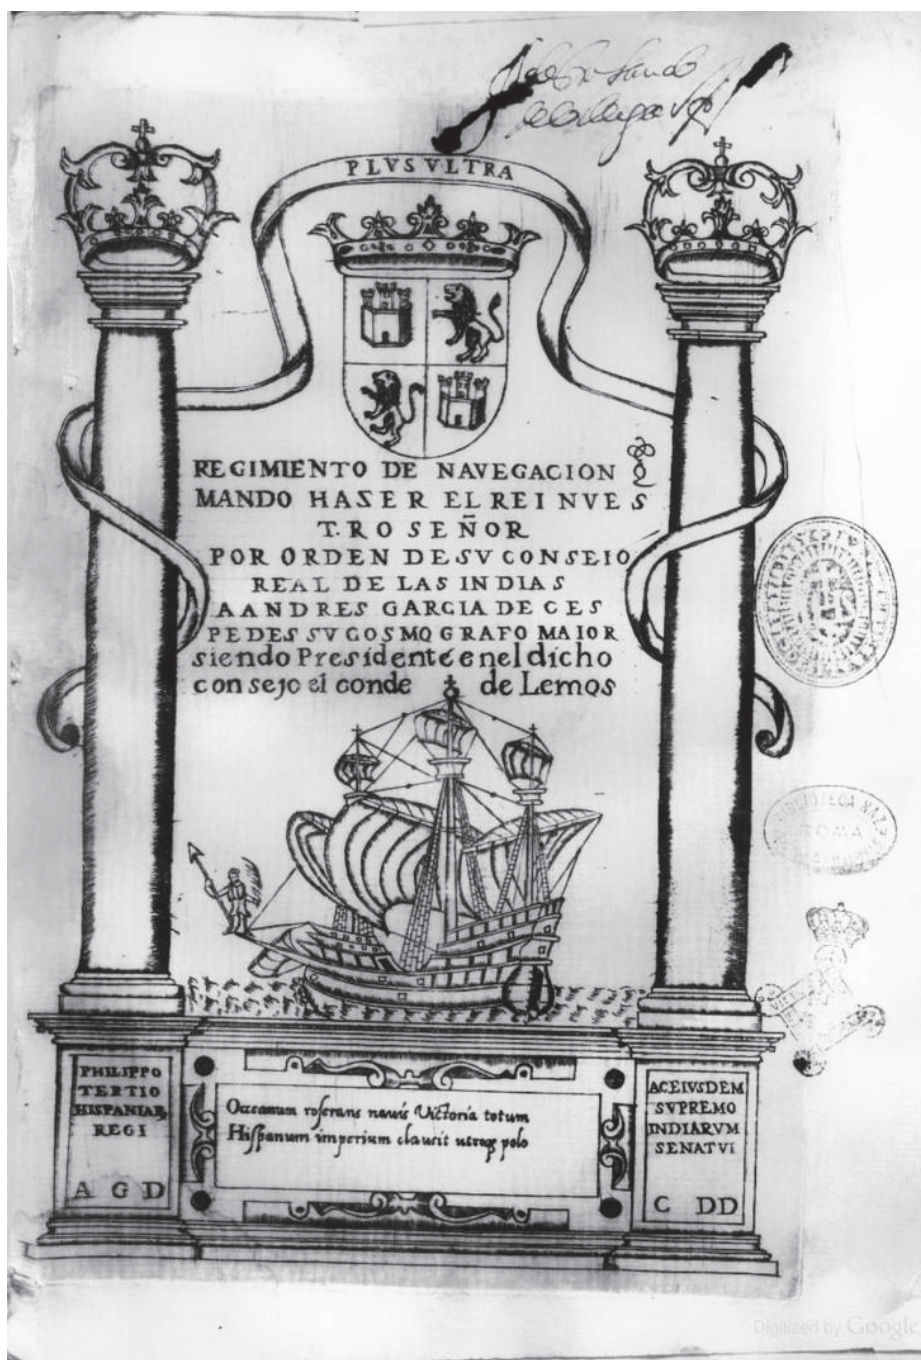 PLVS VLTRA
REGIMIENTO DE NAVEGACION
MANDO HASER EL REI NVES
TRO SEÑOR
POR ORDEN DE SV CONSEIO
REAL DE LAS INDIAS
A ANDRES GARCIA DE CES
PEDES SV COSMOGRAFO MAIOR
siendo Presidente en el dicho
consejo el conde de Lemos
PHILIPPO
TERTIO
HISPANIAR
REGI
A G D
Occeanum reserans navis Victoria totum
Hispanum imperium clausit utroq polo
AC EIVSDEM
SVPREMO
INDIARVM
SENATVI
C DD
ROMA
Digitized by Google